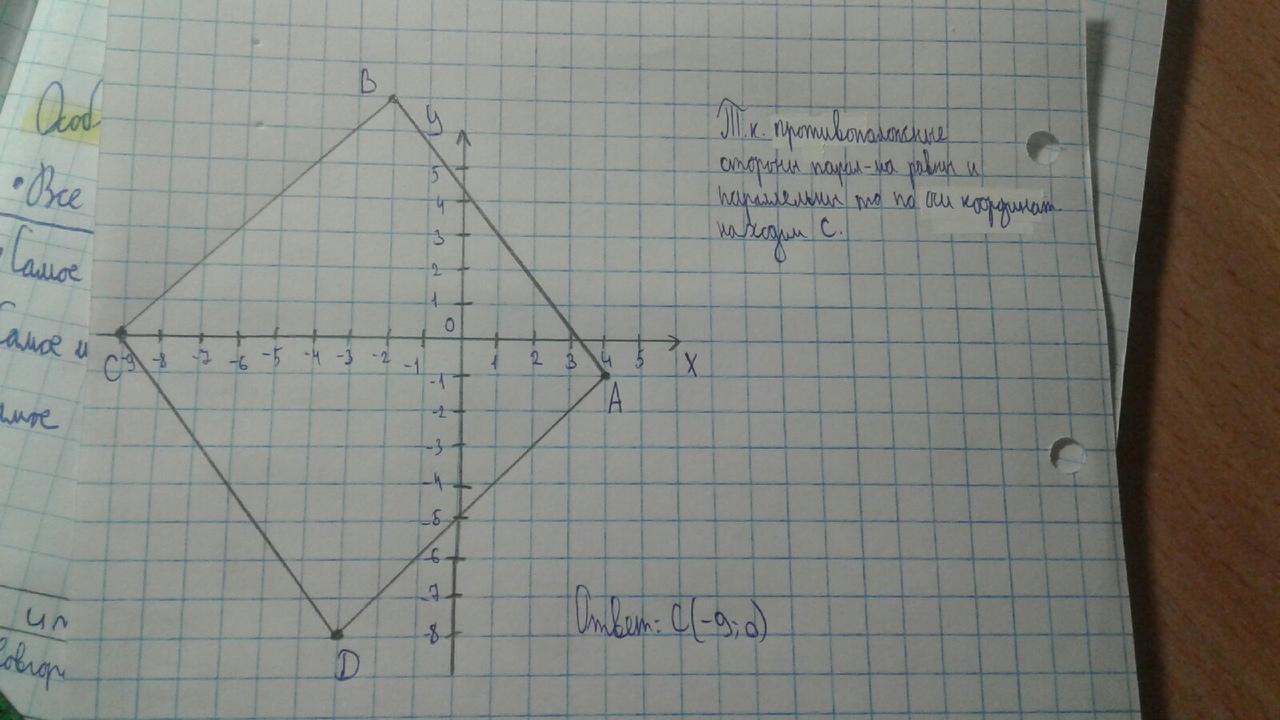 Особ
• Все
• Самое
Самое и
амое
ил
B
У
5
4
3
2
1
0
C -9 -8 -7 -6 -5 -4 -3 -2 -1 1 2 3 4 5 X
-1
A
-2
-3
-4
-5
-6
-7
-8
D
Т.к. противоположные
стороны парал-ма равны и
параллельны то по оси координат
находим С.
Ответ: С(-9;0)